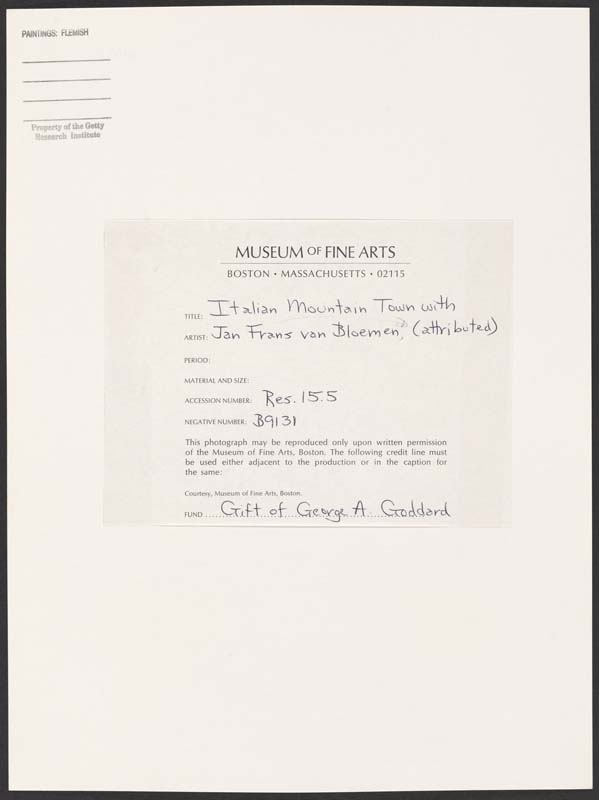 PAINTINGS: FLEMISH
Property of the Getty
Research Institute
MUSEUM OF FINE ARTS
BOSTON • MASSACHUSETTS • 02115
TITLE: Italian Mountain Town with
ARTIST: Jan Frans van Bloemen, (attributed)
PERIOD:
MATERIAL AND SIZE:
ACCESSION NUMBER: Res. 15.5
NEGATIVE NUMBER: B9131
This photograph may be reproduced only upon written permission
of the Museum of Fine Arts, Boston. The following credit line must
be used either adjacent to the production or in the caption for
the same:
Courtesy, Museum of Fine Arts, Boston.
FUND Gift of George A. Goddard